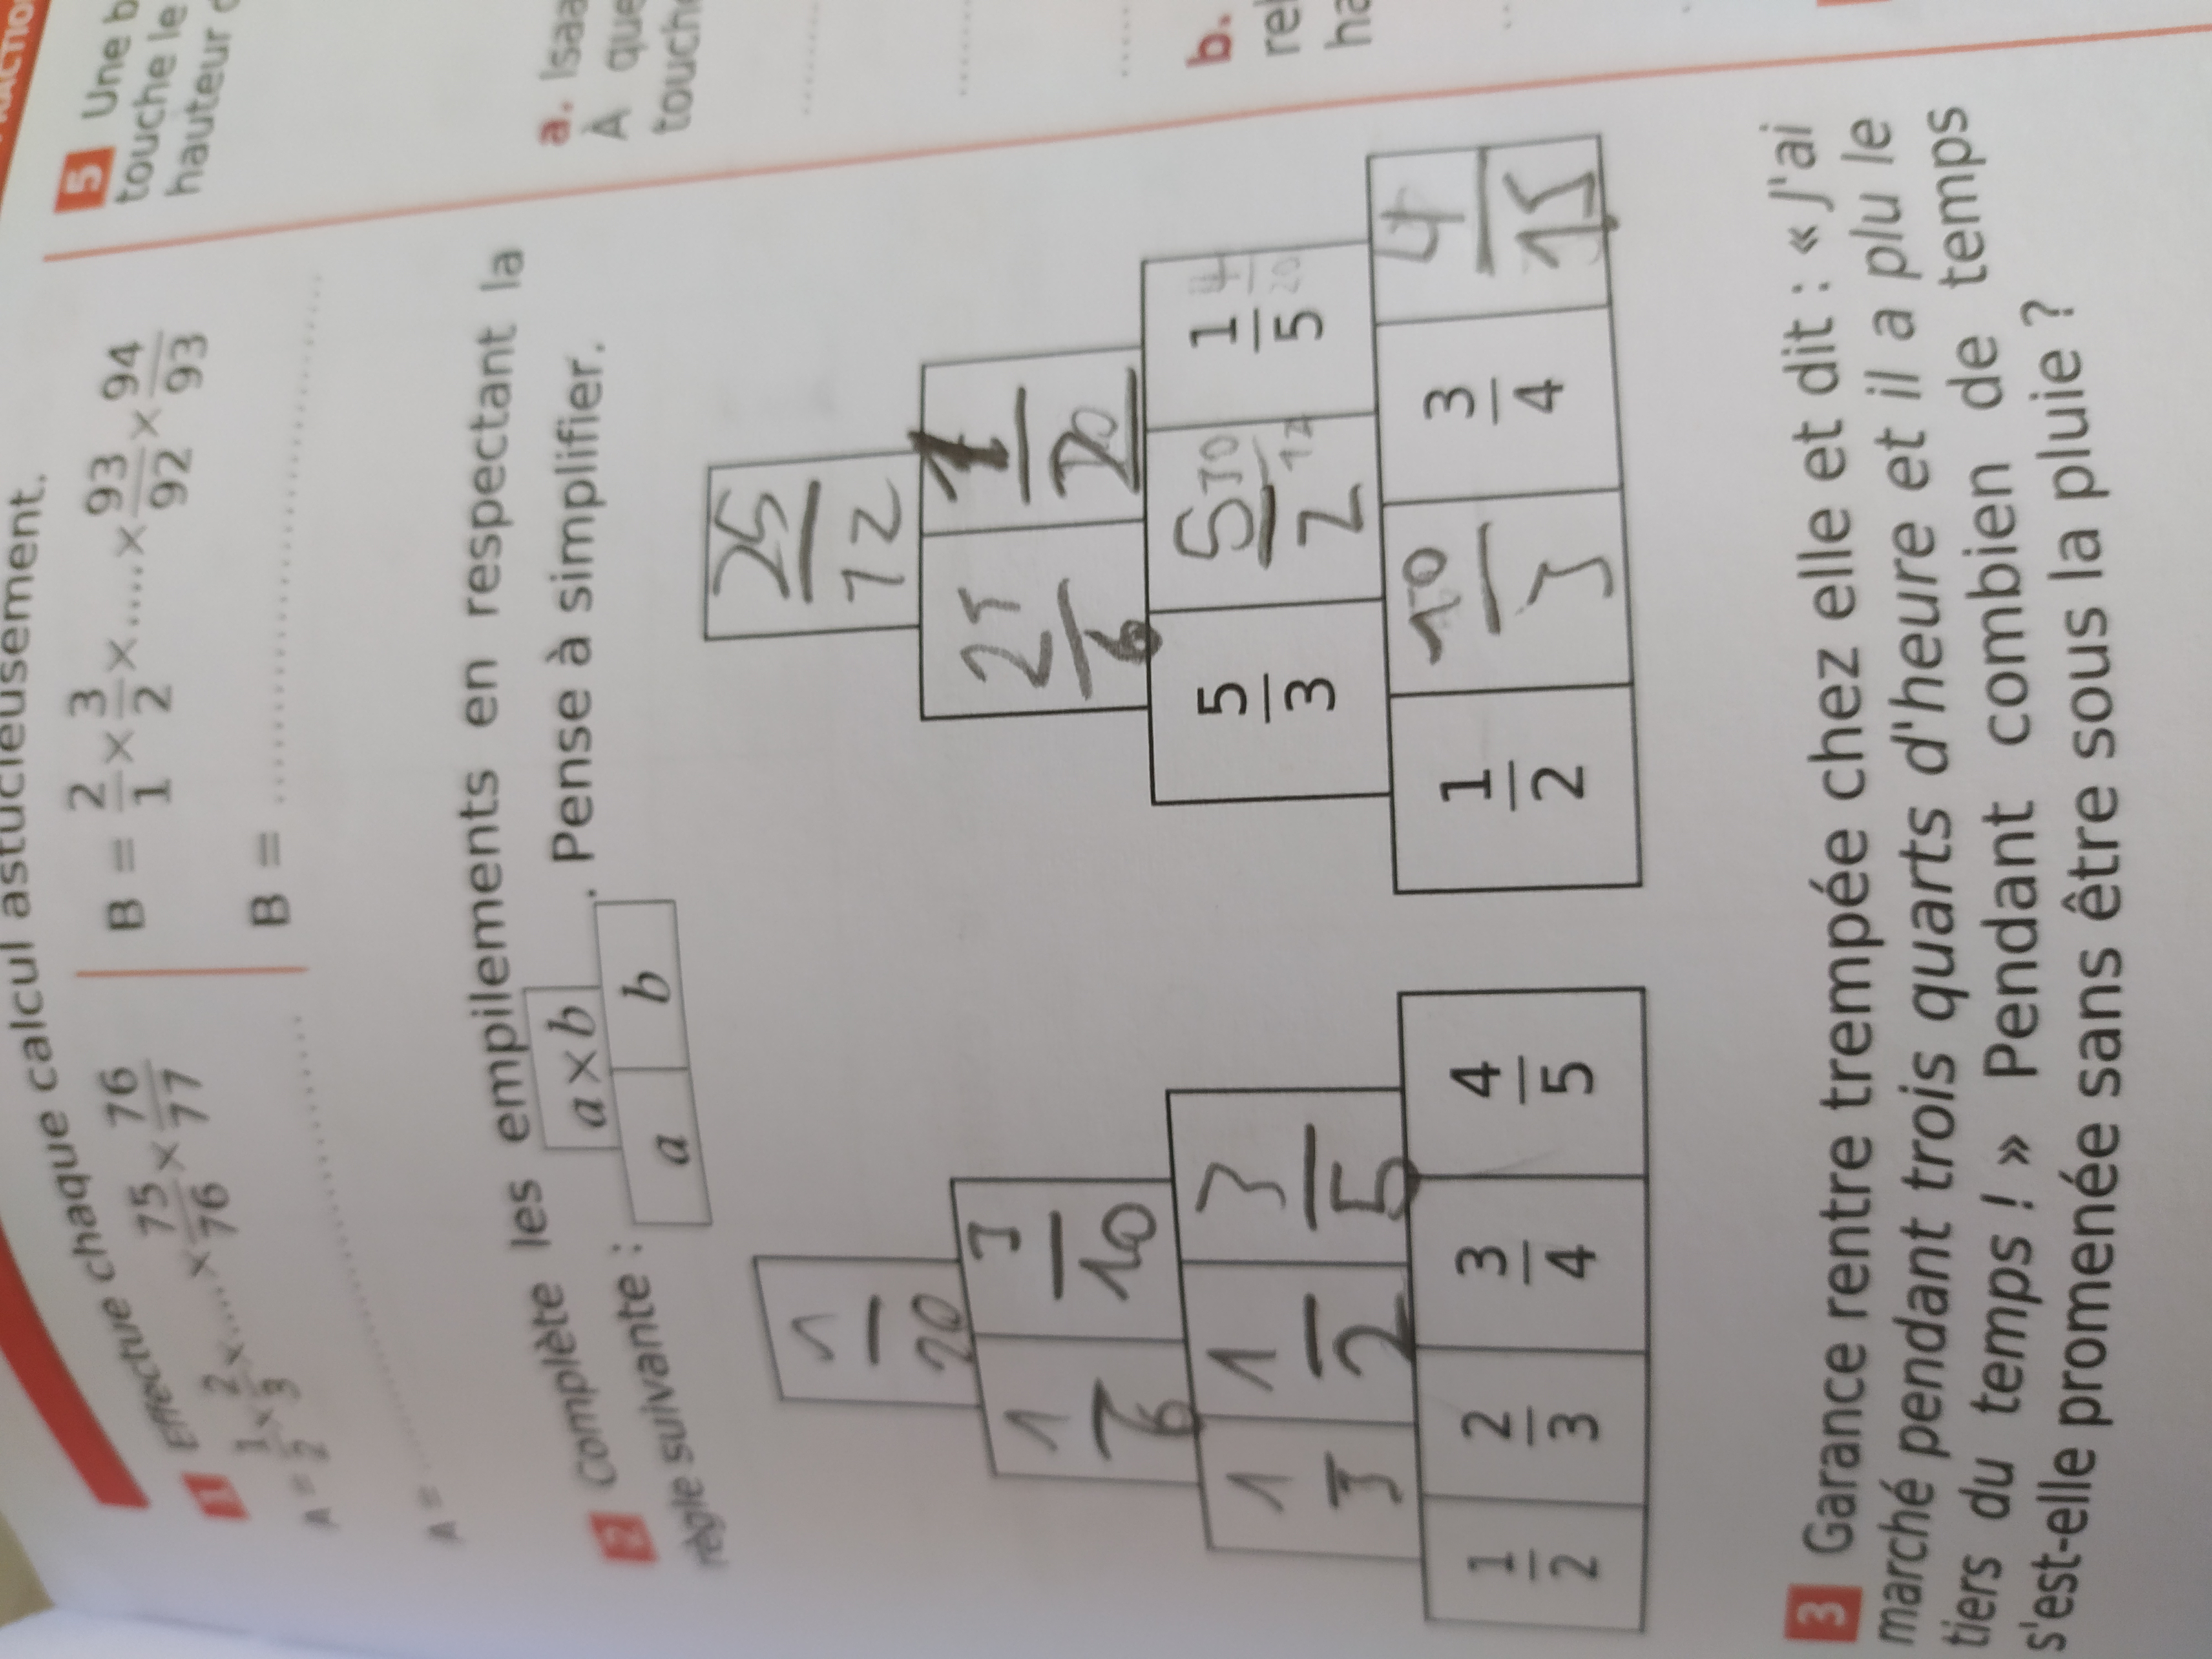 FRACTIO
1 Effectue chaque calcul astucieusement.
A = 1/2 × 2/3 × .... × 75/76 × 76/77
A = ..............................
B = 2/1 × 3/2 × .... × 93/92 × 94/93
B = ..............................
2 Complète les empilements en respectant la
règle suivante :
a×b
a b
. Pense à simplifier.
1/20
1/6 3/10
1/3 1/2 3/5
1/2 2/3 3/4 4/5
25/12
25/6 1/20
5/3 5/2 30/12 1/5 4/20
1/2 10/3 3/4 4/15
3 Garance rentre trempée chez elle et dit : « J'ai
marché pendant trois quarts d'heure et il a plu le
tiers du temps ! » Pendant combien de temps
s'est-elle promenée sans être sous la pluie ?
5 Une b
touche le
hauteur
a. Isaa
À que
touch
b.
rel
ha